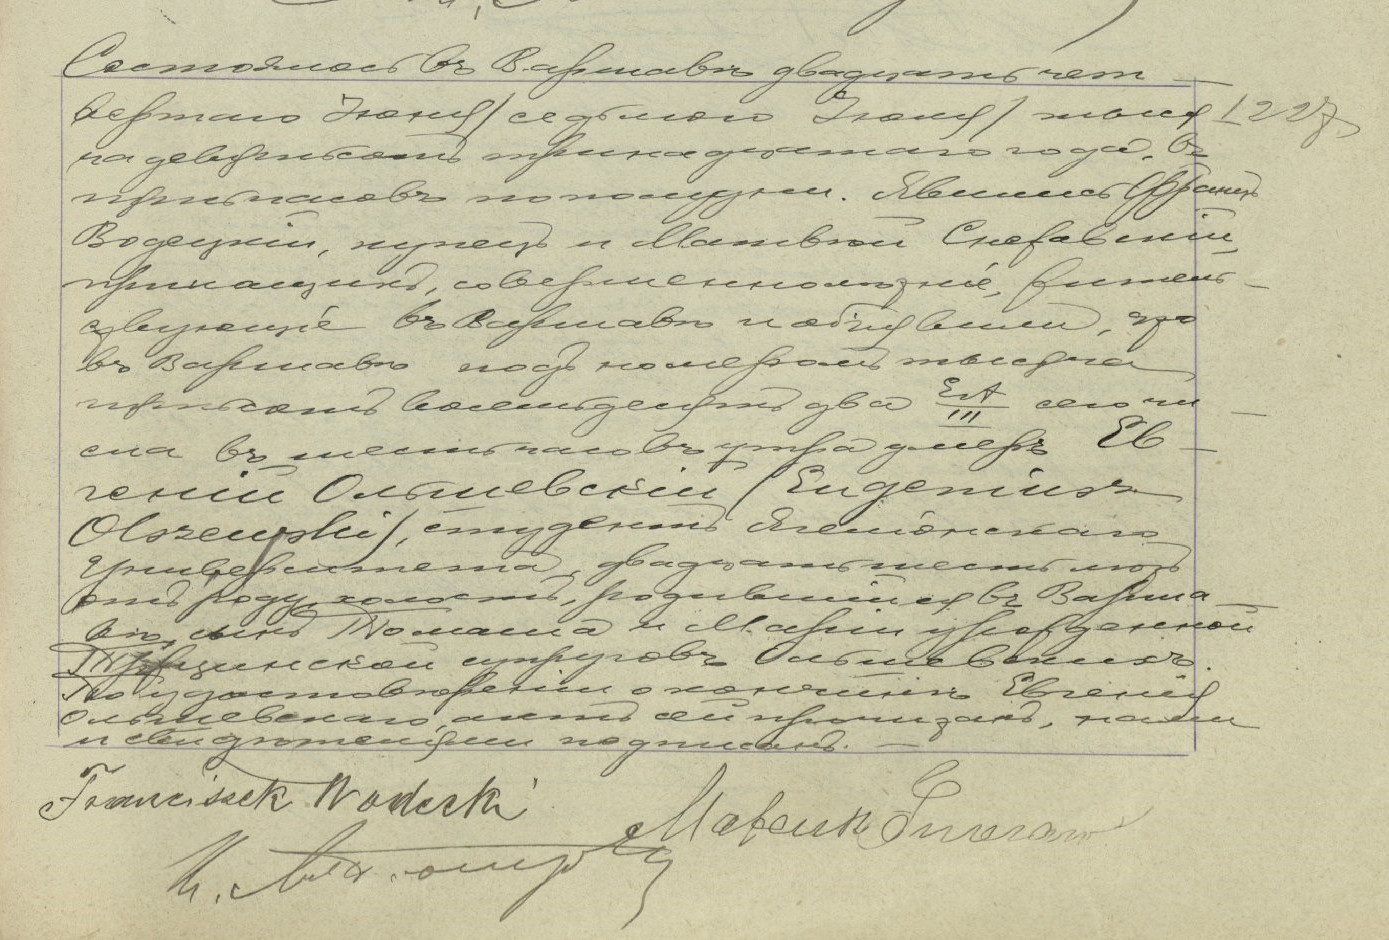 Состоялось въ Варшавѣ двадцать чет
вертаго Іюня /седьмого Іюля/ тыся 1227.
ча девятьсотъ тринадцатаго года, въ
три часовъ пополудни. Явились Францъ
Водецкій, купецъ и Матвѣй
прикащикъ, совершеннолѣтніе, жительс
ствующіе въ Варшавѣ и объявили, что
въ Варшавѣ подъ номеромъ тысяча
триста восемьдесятъ два III сего чи
сла въ шесть часовъ утра умеръ Ев
геній Ольшевскій /Eugeniusz
Olszewski/, студентъ Ягеллонскаго
Университета, двадцать шесть лѣтъ
отъ роду, холостъ, родившійся въ Варша
вѣ, сынъ Томаша и Маріи урожденной
супруговъ Ольшевскихъ.
По удостовѣреніи о кончинѣ Евгенія
Ольшевскаго, актъ сей прочитанъ, нами
и свидѣтелями подписанъ. —
Franciszek Wodecki